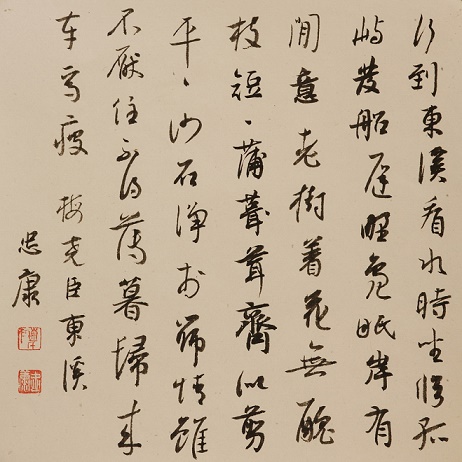 行到東溪看水時坐臨孤
嶼發船遲野鳧眠岸有
閒意老樹着花無醜
枝短、蒲葺茸齊似剪
平、沙石淨於篩情雖
不厭住不得薄暮歸來
車馬疲 梅堯臣東溪
忠康